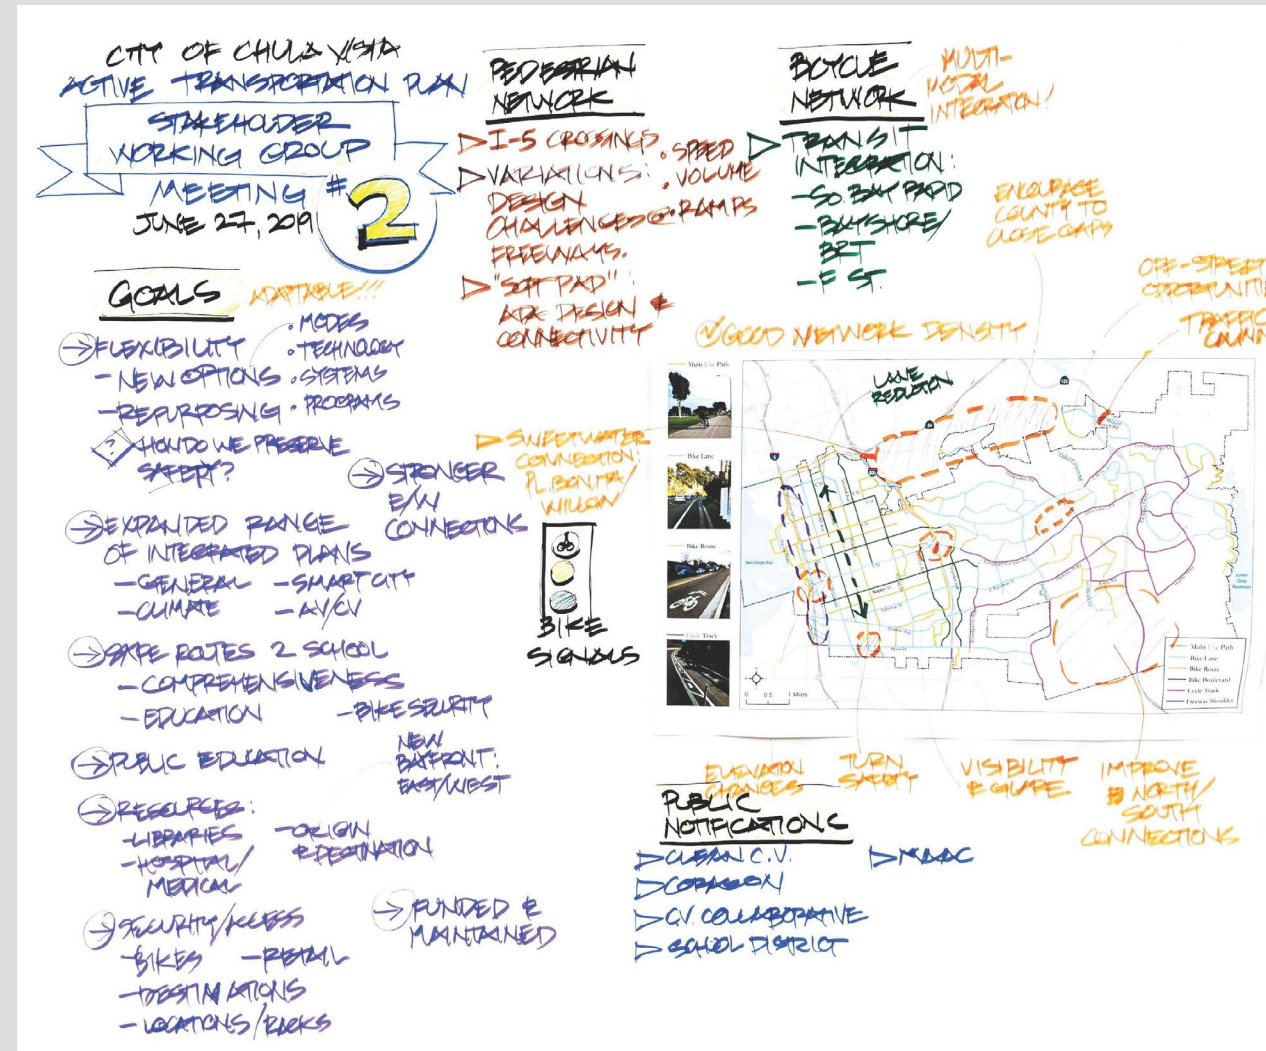 CITY OF CHULA VISTA
ACTIVE TRANSPORTATION PLAN
STAKEHOLDER
WORKING GROUP
MEETING #2
JUNE 27, 2019
GOALS
ADAPTABLE!!!
→ FLEXIBILITY
- NEW OPTIONS
- REPURPOSING
• MODES
• TECHNOLOGY
• SYSTEMS
• PROGRAMS
? HOW DO WE PRESERVE
SAFETY?
→ STRONGER
E/W
CONNECTIONS
→ EXPANDED RANGE
OF INTEGRATED PLANS
- GENERAL - SMART CITY
- CLIMATE - AV/CV
→ SAFE ROUTES 2 SCHOOL
- COMPREHENSIVENESS
- EDUCATION - BIKE SECURITY
→ PUBLIC EDUCATION
NEW
BAYFRONT:
EAST/WEST
→ RESOURCES:
- LIBRARIES
- HOSPITAL/
MEDICAL
- ORIGIN
& DESTINATION
→ SECURITY/ACCESS
- BIKES - RETAIL
- DESTINATIONS
- LOCATIONS/RACKS
→ FUNDED &
MAINTAINED
PEDESTRIAN
NETWORK
▷ I-5 CROSSINGS
▷ VARIATIONS:
DESIGN
CHALLENGES @
FREEWAYS.
• SPEED
• VOLUME
• RAMPS
▷ "SOFT PAD":
ADA DESIGN &
CONNECTIVITY
BICYCLE
NETWORK
MULTI-
MODAL
INTEGRATION!
▷ TRANSIT
INTEGRATION:
- SO. BAY RAPID
- BAYSHORE/
BRT
- F ST.
ENCOURAGE
COUNTY TO
CLOSE GAPS
OFF-STREET
OPPORTUNITI
TRAFFIC
CALMIN
GOOD NETWORK DENSITY
▷ SWEETWATER
CONNECTION:
PL. BONITA/
WILLOW
BIKE
SIGNALS
LANE
REDUCTION
Multi Use Path
Bike Lane
Bike Route
Cycle Track
San Diego Bay
Lower
Otay
Reservoir
0 0.5 1 Miles
Multi Use Path
Bike Lane
Bike Route
Bike Boulevard
Cycle Track
Freeway Shoulder
ELEVATION
CHANGES
TURN
SAFETY
VISIBILITY
& GLARE
IMPROVE
NORTH/
SOUTH
CONNECTIONS
PUBLIC
NOTIFICATIONS
▷ CLEAN C.V.
▷ CORAZON
▷ C.V. COLLABORATIVE
▷ SCHOOL DISTRICT
▷ MAAC